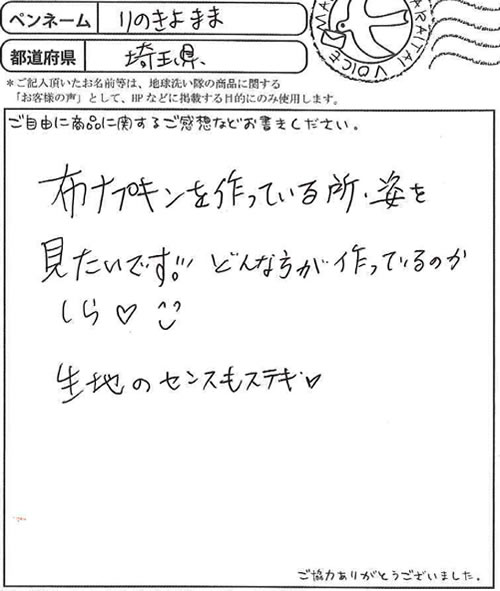 ペンネーム りのきよまま
都道府県 埼玉県
*ご記入頂いたお名前等は、地球洗い隊の商品に関する
「お客様の声」として、HPなどに掲載する目的にのみ使用します。
ARAITAI VOICE MA
ご自由に商品に関するご感想などお書きください。
布ナプキンを作っている所・姿を
見たいです!! どんな方が作っているのか
しら♡
生地のセンスもステキ♡
ご協力ありがとうございました。